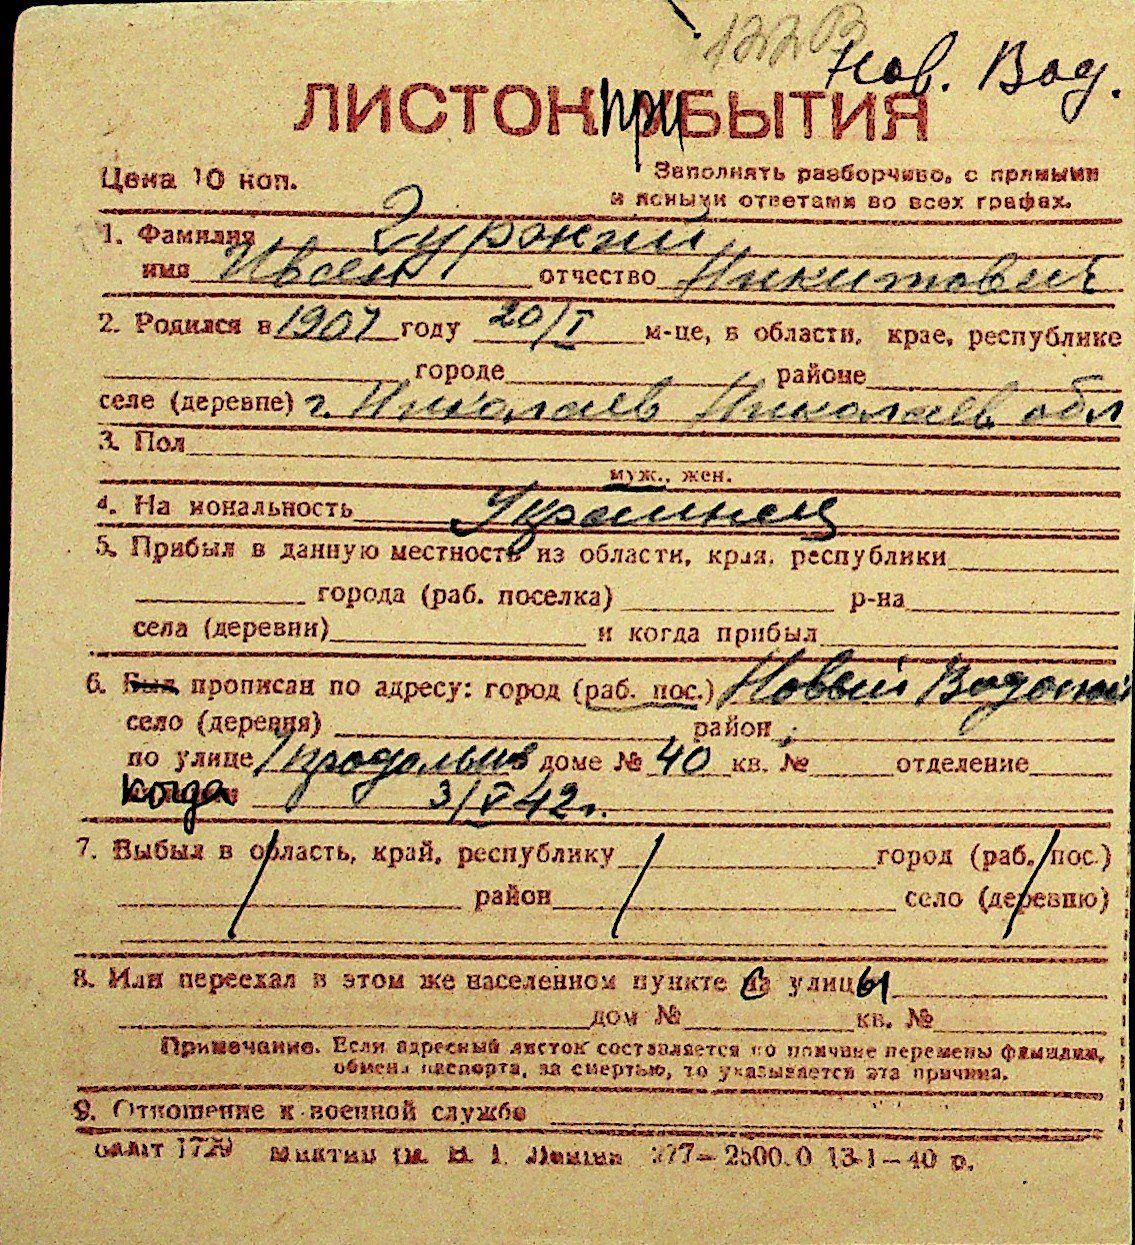 1220в
Нов. Вод.
ЛИСТОК ПРИБЫТИЯ
Цена 10 коп.
Заполнять разборчиво, с прямыми
и ясными ответами во всех графах.
1. Фамилия Гуржий
имя отчество Никитович
2. Родился в 1907 году 20/I м-це, в области, крае, республике
городе районе
селе (деревне) г. Николаев Николаев. обл
3. Пол
муж., жен.
4. Национальность Украинец
5. Прибыл в данную местность из области, края, республики
города (раб. поселка) р-на
села (деревни) и когда прибыл
6. Был прописан по адресу: город (раб. пос.) Новый Водопой
село (деревня) район
по улице Продольная доме № 40 кв. № отделение
когда 3/V 42 г.
7. Выбыл в область, край, республику город (раб. пос.)
район село (деревню)
8. Или переехал в этом же населенном пункте с улицы
дом № кв. №
Примечание. Если адресный листок составляется по причине перемены фамилии,
обмена паспорта, за смертью, то указывается эта причина.
9. Отношение к военной службе
1729 Ленина 277—2500.0 13-1—40 р.